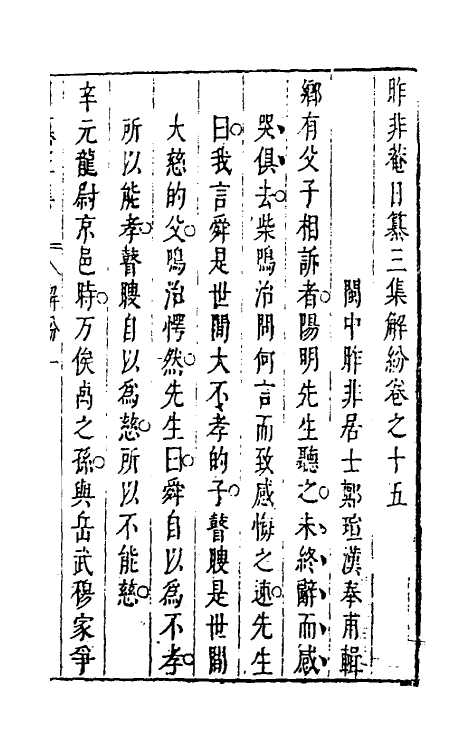 昨非菴日纂三集解紛卷之十五
閩中昨非居士鄭瑄漢奉甫輯
鄉有父子相訴者陽明先生聽之未終辭而感
哭俱去柴鳴治問何言而致感悔之速先生
曰我言舜是世間大不孝的子瞽瞍是世間
大慈的父鳴治愕然先生曰舜自以爲不孝
所以能孝瞽瞍自以爲慈所以不能慈
辛元龍尉京邑時万俟卨之孫與岳武穆家爭
解紛
一